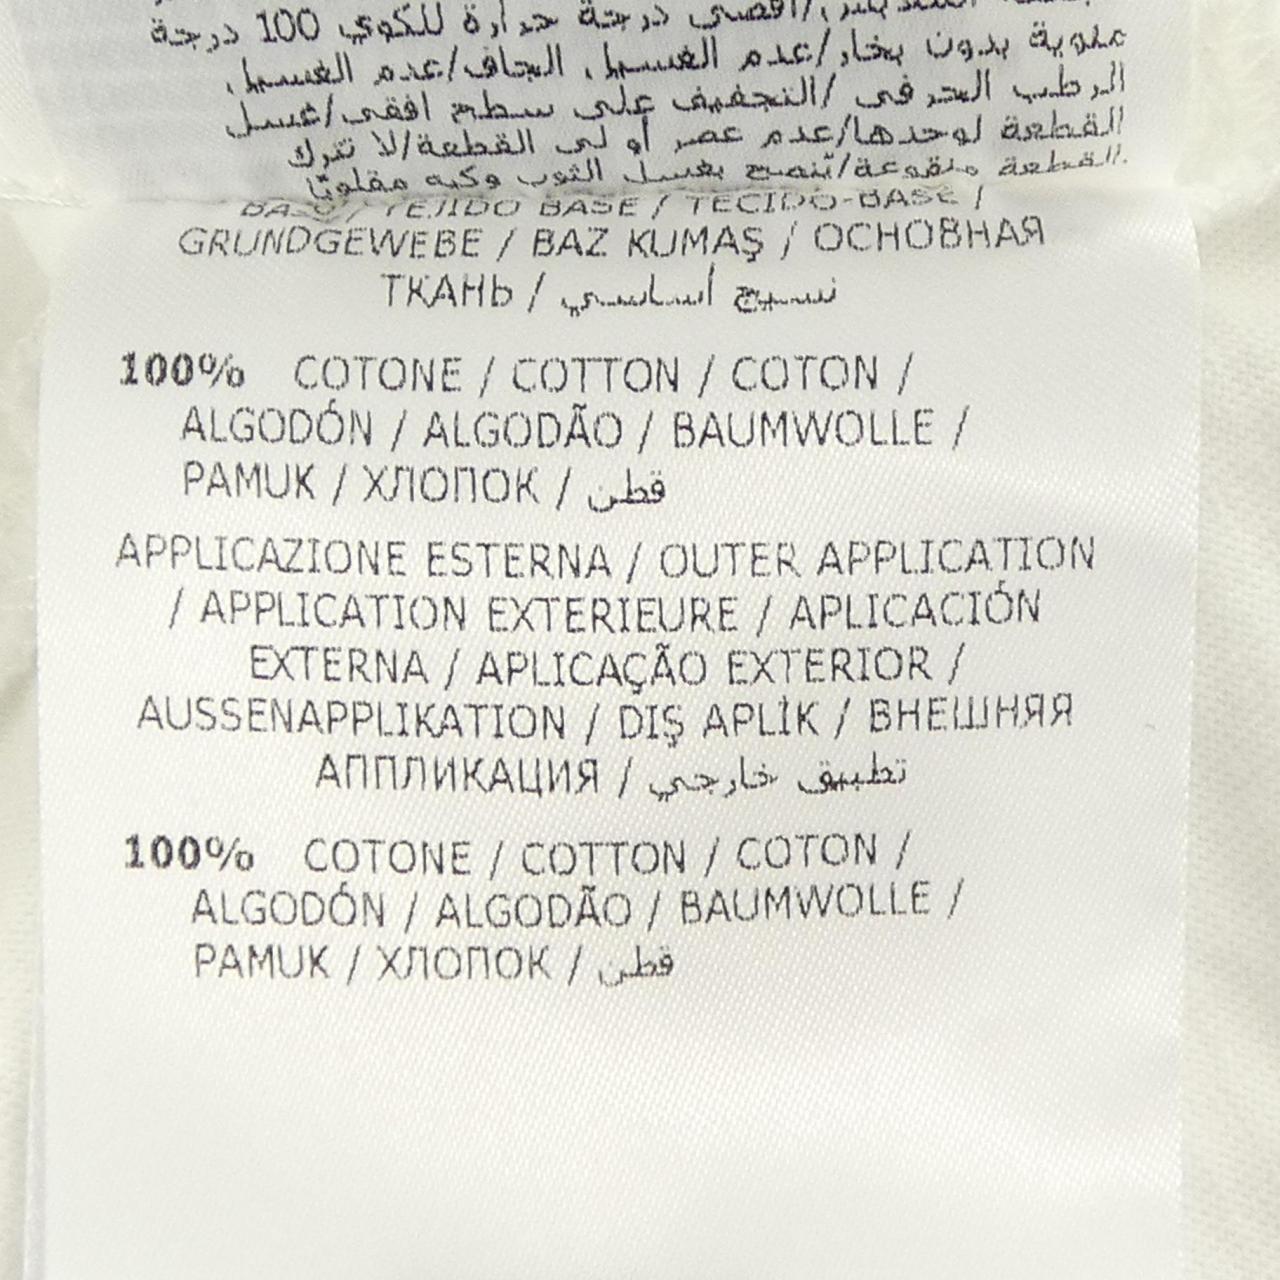 /أقصى درجة حرارة للكوي 100 درجة
مئوية بدون بخار/عدم الغسيل الجاف/عدم الغسيل
الرطب الحرفي /التجفيف على سطح افقي/غسل
القطعة لوحدها/عدم عصر أو لي القطعة/لا تترك
القطعة منقوعة/يُنصح بغسل الثوب وكيه مقلوبًا
BASE / TEJIDO BASE / TECIDO-BASE /
GRUNDGEWEBE / BAZ KUMAŞ / ОСНОВНАЯ
ТКАНЬ / نسيج أساسي
100% COTONE / COTTON / COTON /
ALGODÓN / ALGODÃO / BAUMWOLLE /
PAMUK / ХЛОПОК / قطن
APPLICAZIONE ESTERNA / OUTER APPLICATION
/ APPLICATION EXTERIEURE / APLICACIÓN
EXTERNA / APLICAÇÃO EXTERIOR /
AUSSENAPPLIKATION / DIŞ APLİK / ВНЕШНЯЯ
АППЛИКАЦИЯ / تطبيق خارجي
100% COTONE / COTTON / COTON /
ALGODÓN / ALGODÃO / BAUMWOLLE /
PAMUK / ХЛОПОК / قطن